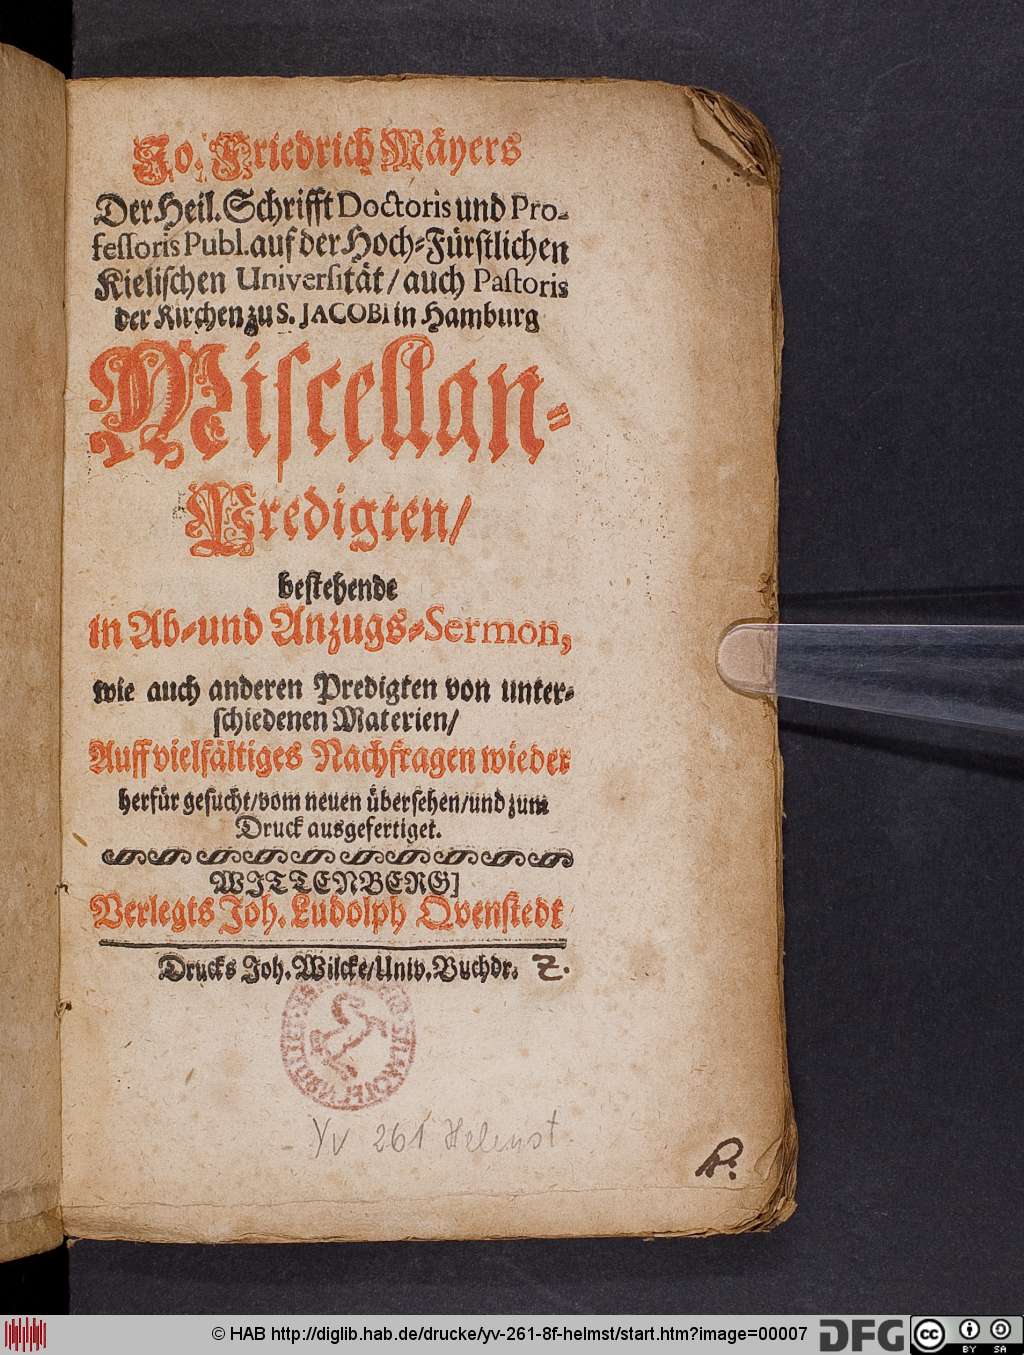 Jo. Friedrich Mäyers
Der Heil. Schrifft Doctoris und Pro-
fessoris Publ. auf der Hoch-Fürstlichen
Kielischen Universität/ auch Pastoris
der Kirchen zu S. JACOBI in Hamburg
Miscellan-
Predigten/
bestehende
in Ab- und Anzugs-Sermon,
wie auch anderen Predigten von unter-
schiedenen Materien/
Auff vielfältiges Nachfragen wieder
herfür gesucht/ vom neuen übersehen/ und zum
Druck ausgefertiget.
WITTENBERG]
Verlegts Joh. Ludolph Qvenstedt
Drucks Joh. Wilcke/ Univ. Buchdr. Z.
Yv 261 Helmst.
© HAB http://diglib.hab.de/drucke/yv-261-8f-helmst/start.htm?image=00007
DFG
cc BY SA